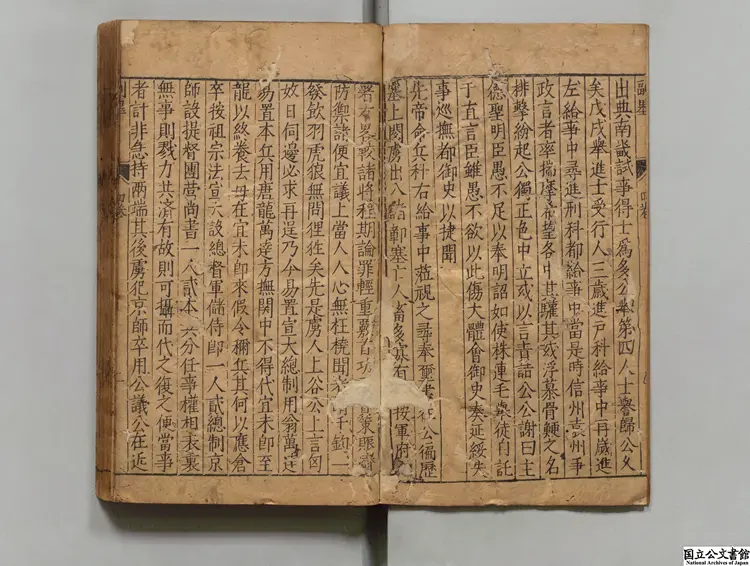 出典南畿試事得士爲多公舉第四人士譽歸公久
矣戊戌舉進士受行人三歲進戸科給事中再歲進
左給事中尋進刑科都給事中當是時信州袁州爭
政言者率揣摩希望各中其驩其或浮慕骨鯁之名
排擊紛起公獨正色中立或以言責詰公公謝曰主
德聖明臣愚不足以奉明詔如使株連毛 徒自託
于直言臣雖愚不欲以此傷大體會御史奏延綏失
事巡撫都御史以捷聞
先帝命兵科右給事中 視之尋奉璽書 公徧歷
塞上閱虜出入 鄣塞亡人畜多寡有 按軍府
畧 諸將程期論罪輕重 功 賑
防禦諸便宜議上當人人心無枉橈聞 千鈞一
發飲羽虎狼無問狸狌矣先是虜人上谷公上言匈
奴日伺邊必求再逞乃今易置宣大總制用翁萬達
易置本兵用唐龍萬達方撫關中不得代宜未即至
龍以終養去毋在宜未即來假令禰兵其何以應倉
卒按祖宗法宣大設總督軍儲侍郎一人貳總制京
師設提督團營尚書一人貳本兵分任事權相表裏
無事則戮力共濟有故則可攝而代之復之便當事
者計非急持兩端其後虜犯京師卒用公議公在近
四卷
国立公文書館
National Archives of Japan